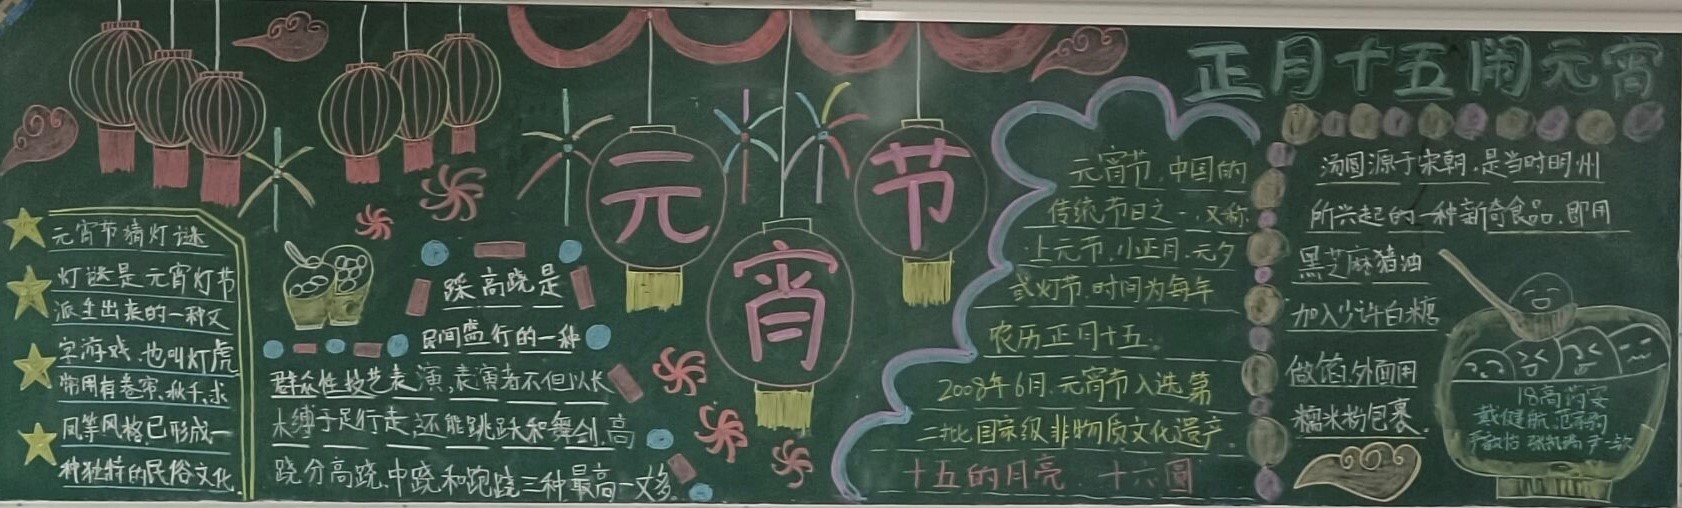 正月十五闹元宵
元
宵
节
元宵节猜灯谜
灯谜是元宵灯节
派生出来的一种文
字游戏,也叫灯虎
常用有卷帘、秋千、求
凤等风格已形成一
种独特的民俗文化
踩高跷是
民间盛行的一种
群众性技艺表演,表演者不但以长
木缚于足行走,还能跳跃和舞剑,高
跷分高跷,中跷和跑跷三种最高一丈多
元宵节,中国的
传统节日之一,又称
上元节,小正月,元夕
或灯节,时间为每年
农历正月十五。
2008年6月,元宵节入选第
二批国家级非物质文化遗产
十五的月亮 十六圆
汤圆源于宋朝,是当时明州
所兴起的一种新奇食品,即用
黑芝麻猪油
加入少许白糖
做馅,外面用
糯米粉包裹.
18高药安
戴健航